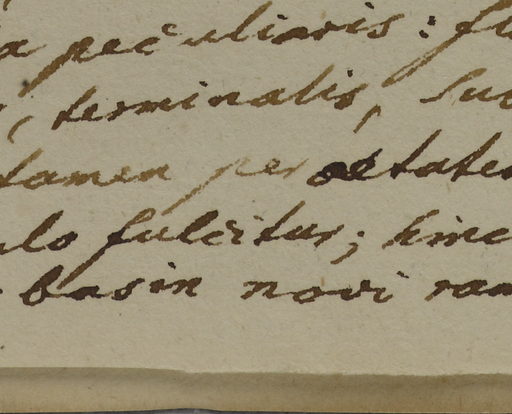 a peculiaris: fl
, terminalis, su
tamen per aetatem
ulo fulcitur; hinc
basin novi ram